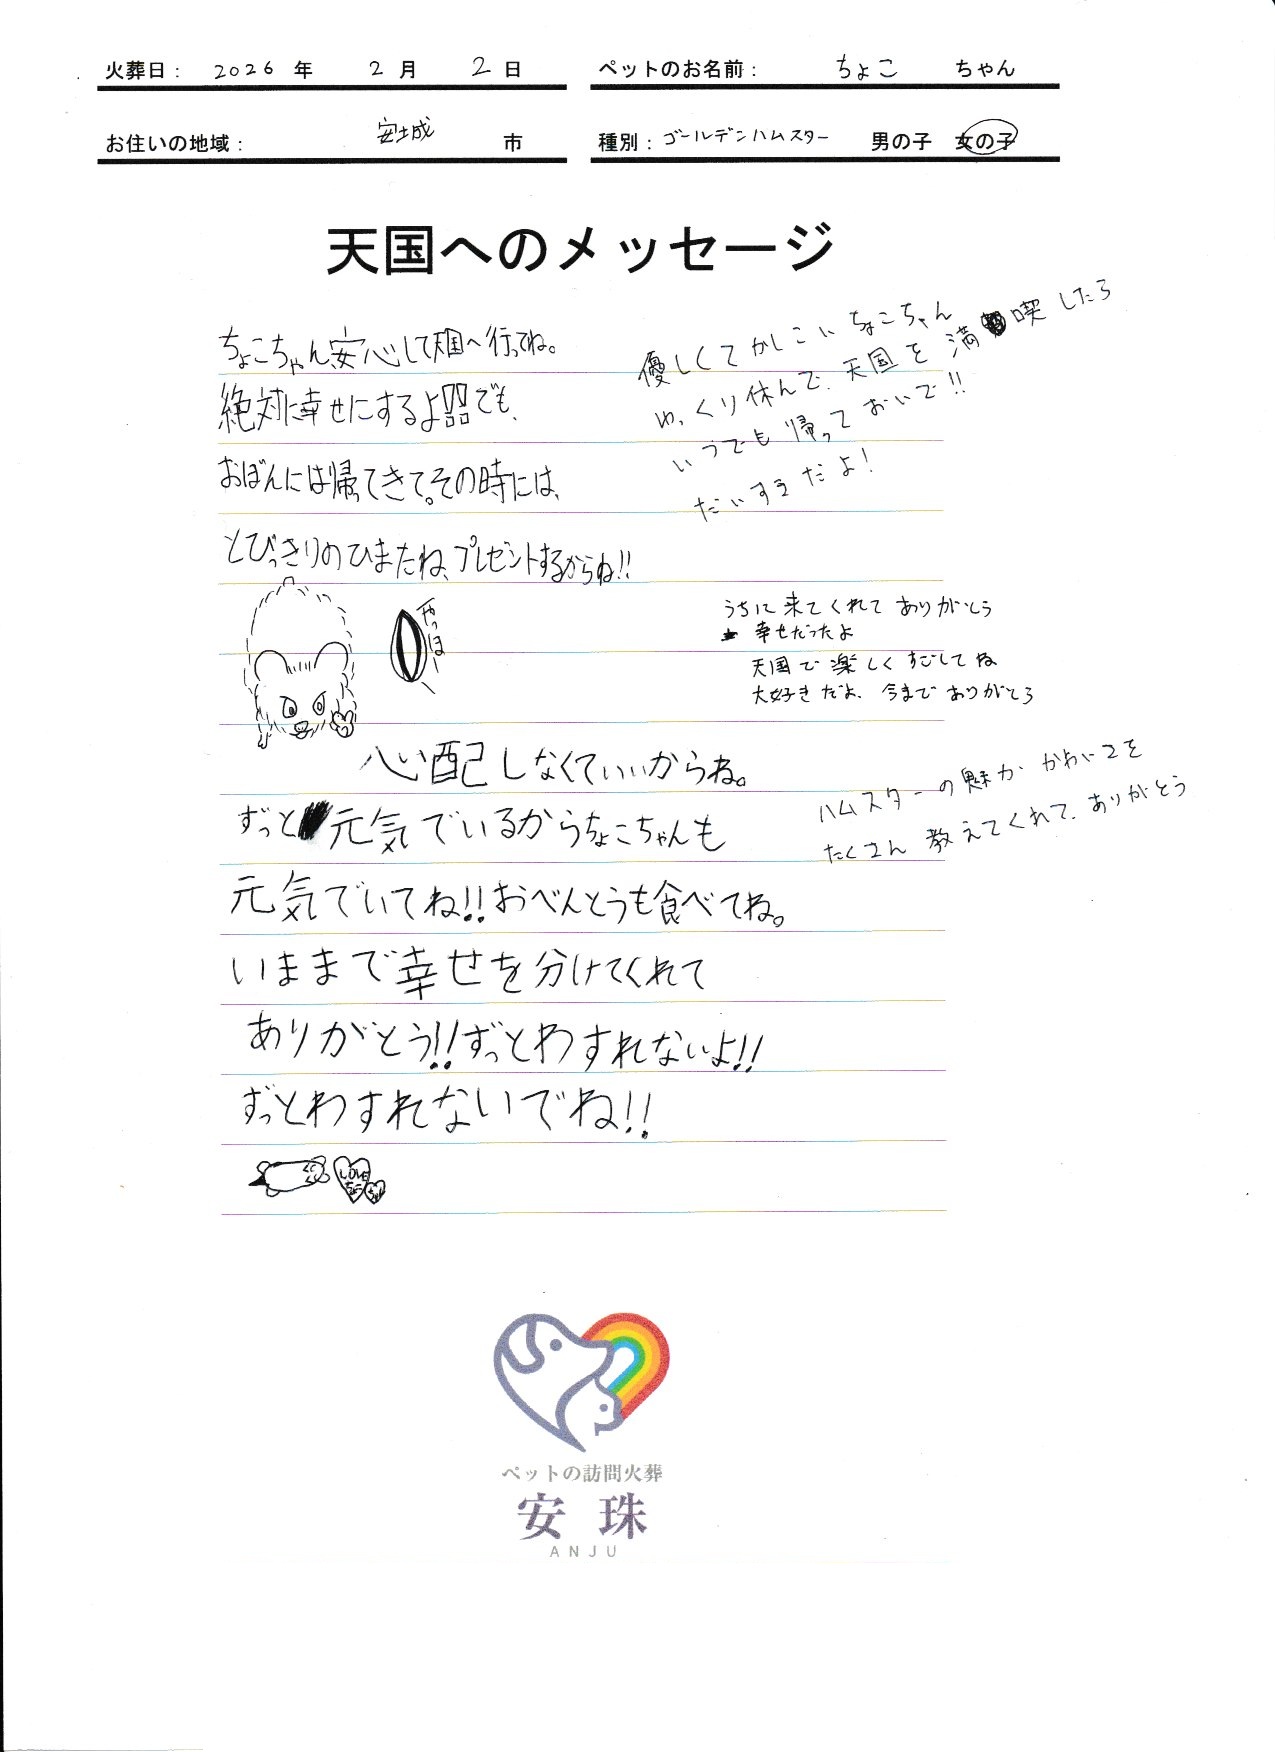 火葬日： 2026 年 2 月 2 日
ペットのお名前： ちょこ ちゃん
お住いの地域： 安城 市
種別：ゴールデンハムスター 男の子 女の子
天国へのメッセージ
ちょこちゃん安心して天国へ行ってね。
絶対に幸せにするよ!!でも、
おぼんには帰ってきて。その時には、
とびっきりのひまたね、プレゼントするからね!!
やっほー
心配しなくていいからね。
ずっと元気でいるからちょこちゃんも
元気でいてね!!おべんとうも食べてね。
いままで幸せを分けてくれて
ありがとう!!ずっとわすれないよ!!
ずっとわすれないでね!!
LOVE
ちょこ
優しくてかしこいちょこちゃん
ゆっくり休んで、天国を満喫したら
いつでも帰っておいで!!
だいすきだよ!
うちに来てくれてありがとう
幸せだったよ
天国で楽しくすごしてね
大好きだよ、今までありがとう
ハムスターの魅力かわいさを
たくさん教えてくれて、ありがとう
ペットの訪問火葬
安珠
ANJU